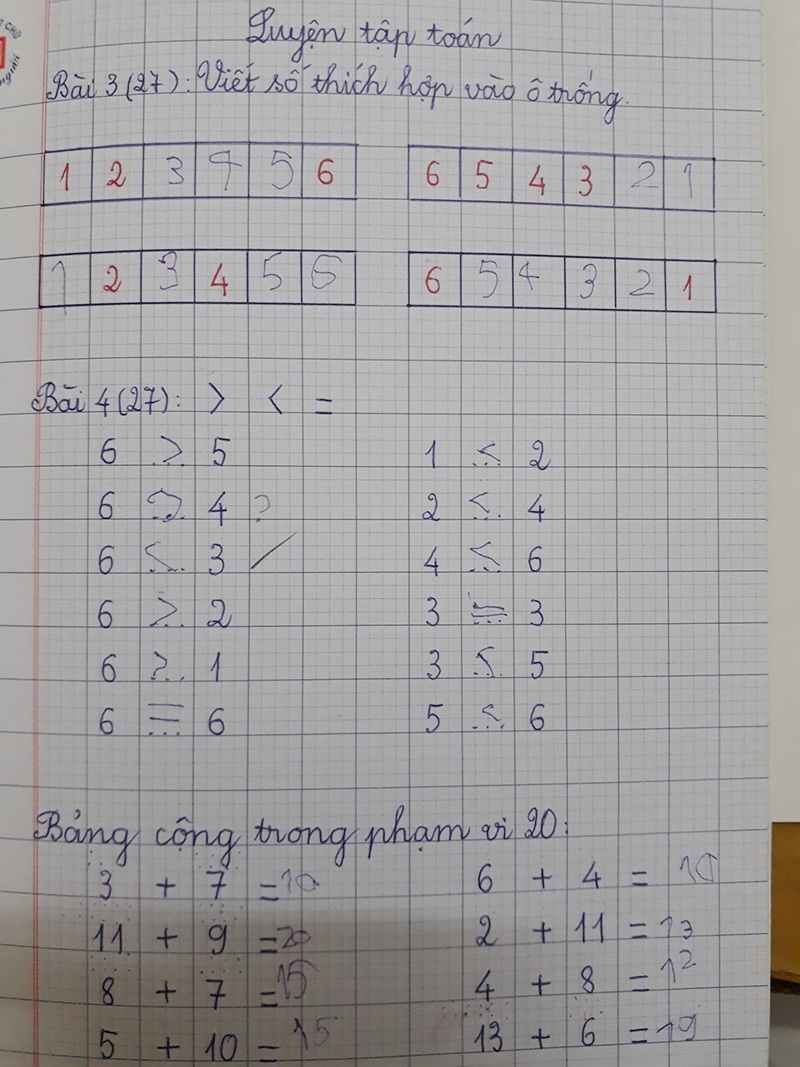 Luyện tập toán
Bài 3 (27): Viết số thích hợp vào ô trống.
1 2 3 4 5 6 6 5 4 3 2 1
1 2 3 4 5 6 6 5 4 3 2 1
Bài 4 (27): > < =
6 > 5 1 < 2
6 > 4 ? 2 < 4
6 < 3 / 4 < 6
6 > 2 3 = 3
6 > 1 3 < 5
6 = 6 5 < 6
Bảng cộng trong phạm vi 20:
3 + 7 = 10 6 + 4 = 10
11 + 9 = 20 2 + 11 = 13
8 + 7 = 15 4 + 8 = 12
5 + 10 = 15 13 + 6 = 19